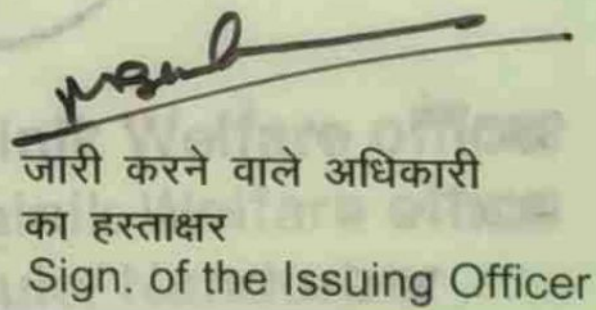 जारी करने वाले अधिकारी
का हस्ताक्षर
Sign. of the Issuing Officer